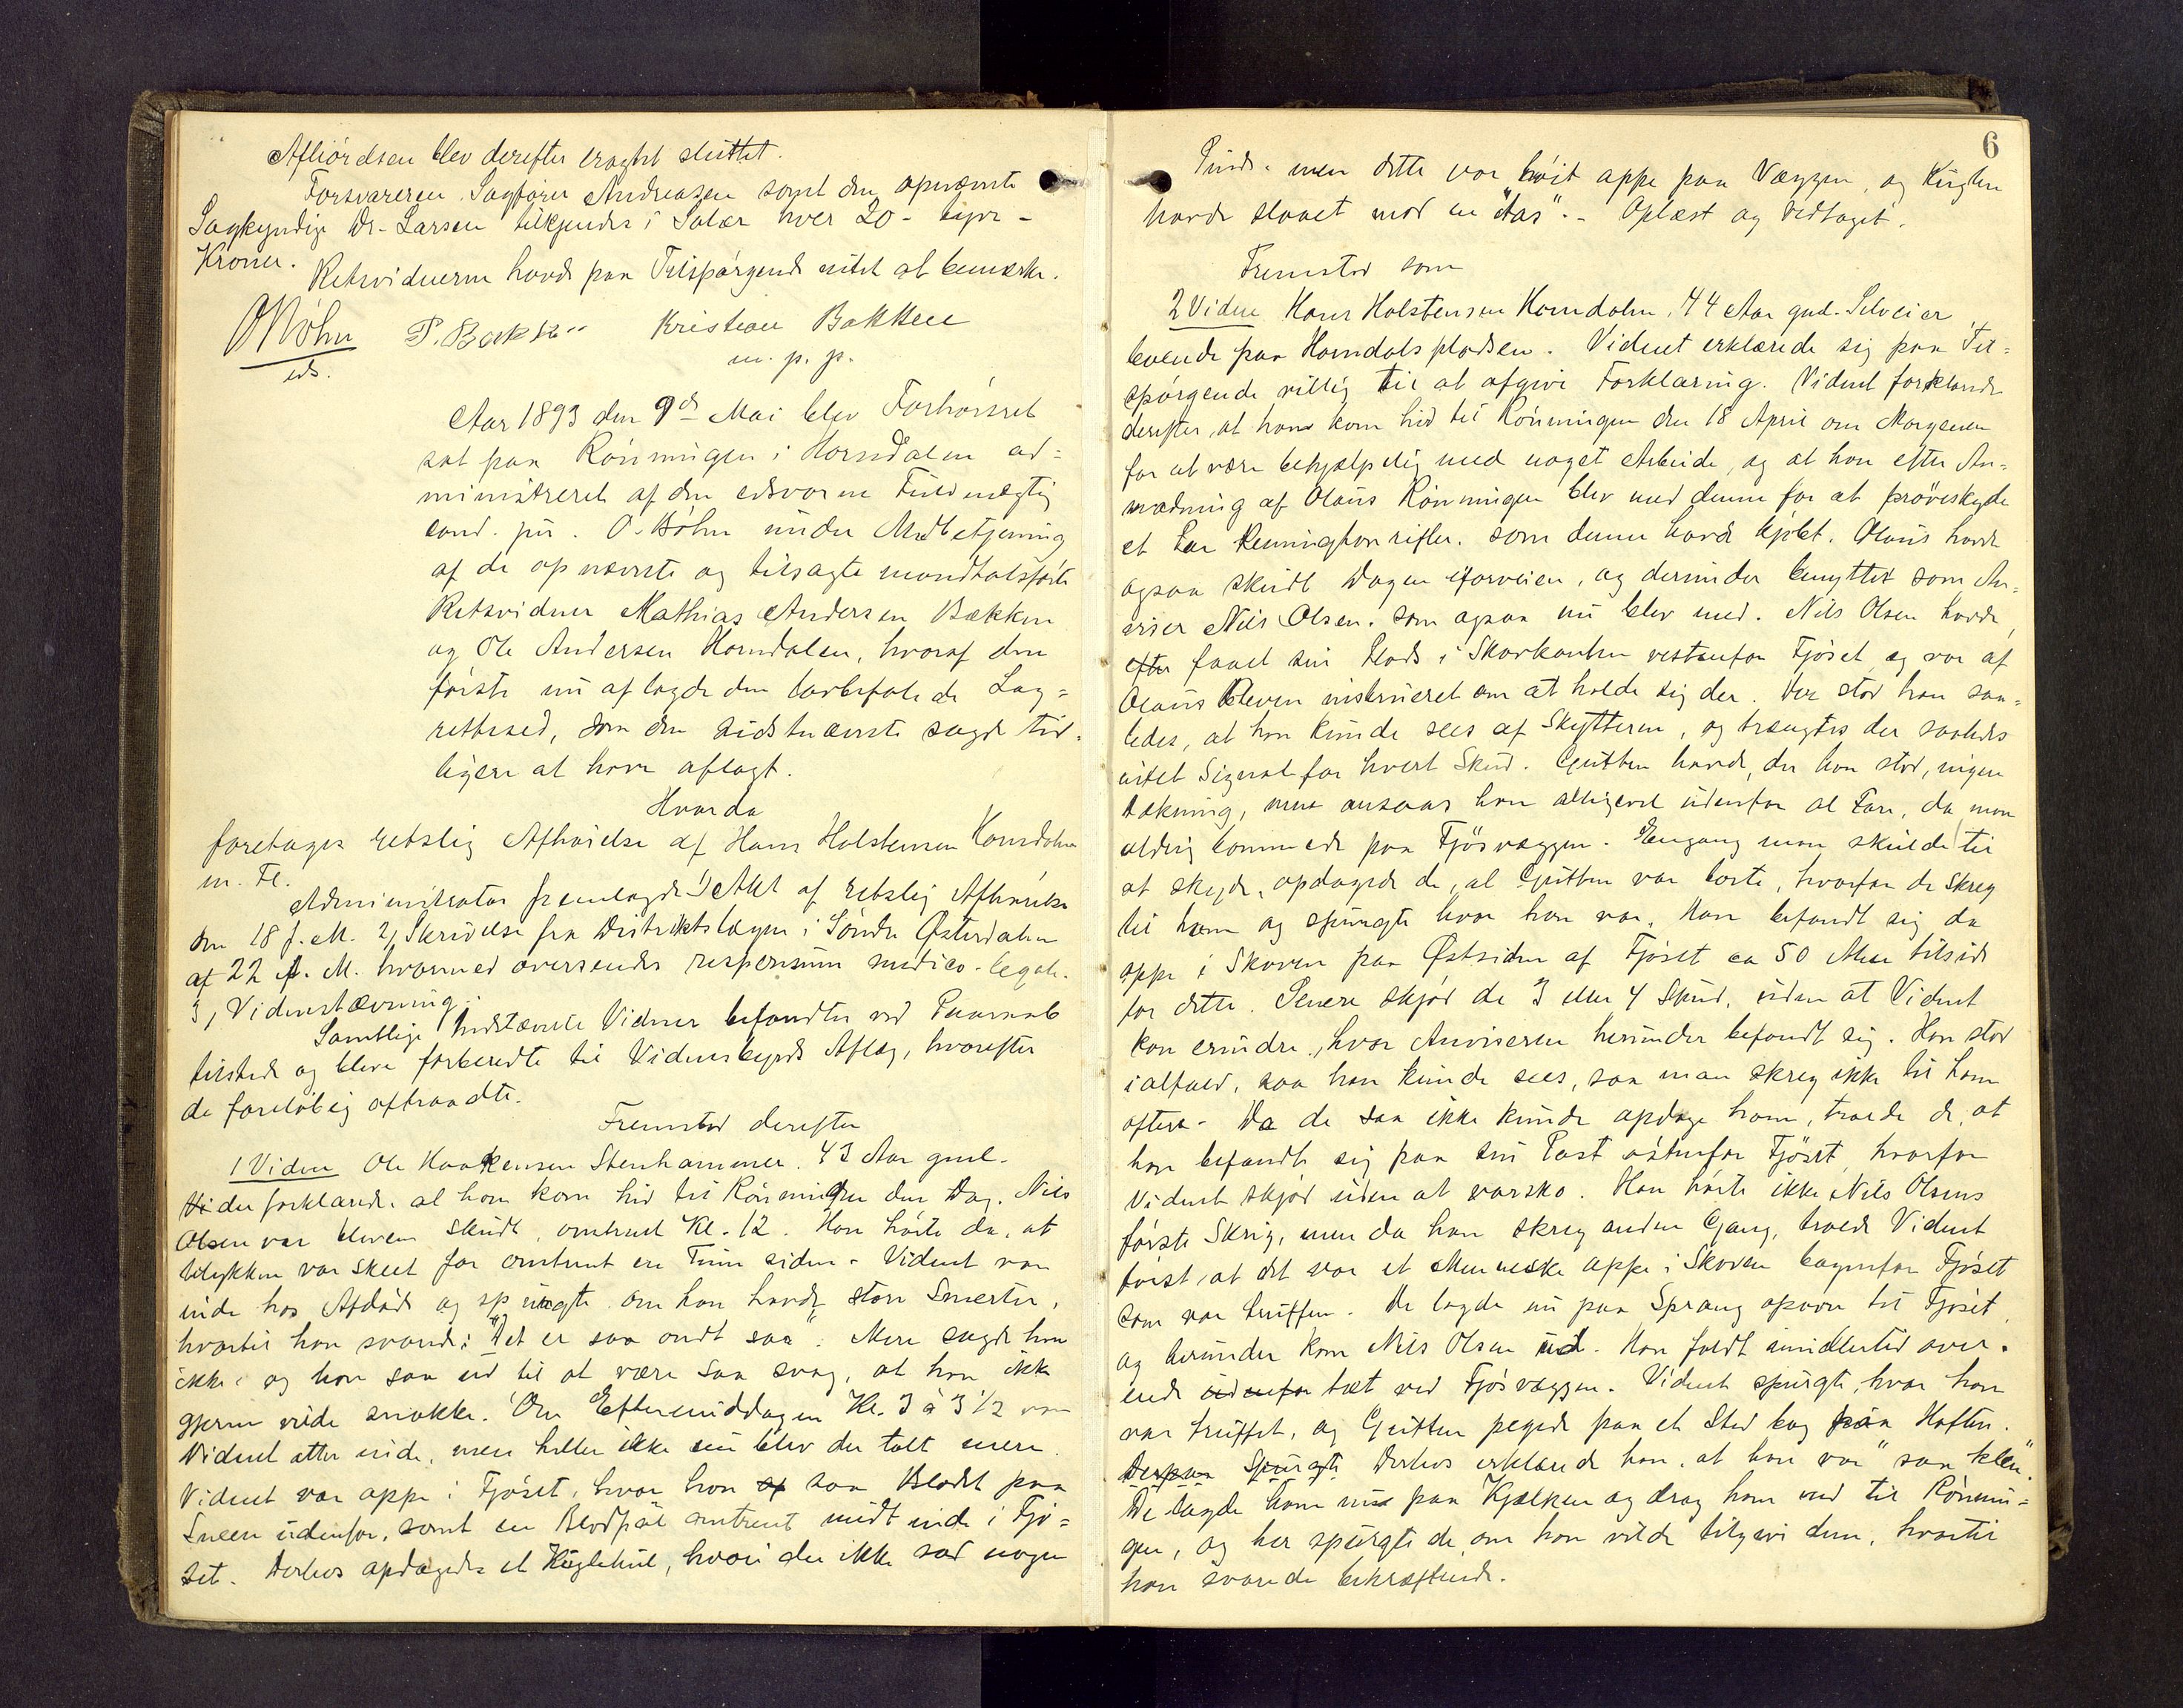 Afhörelsen blev derefter eragtet sluttet.
Forsvareren Sagfører Andreassen samt den opnævnte
Sagkyndige Dr. Larsen tilkjendes i Salær hver 20 - tyve -
Kroner.
Retsvidnerne havde paa Tilspørgende intet at bemærke.
OBöhn P. Bakke Kristian Bakken
eds. m. p. p.
Aar 1893 den 9de Mai blev Forhørsret
sat paa Rönningen i Horndalen ad=
ministreret af den edsvorne Fuldmægtig
cand. jur. O. Böhn under Medbetjening
af de opnævnte og tilsagte mandtalsførte
Retsvidner Mathias Andersen Bækken
og Ole Andersen Horndalen, hvoraf den
første nu aflagde den lovbefalede Lag=
rettesed, som den sidstnævnte sagde tid=
ligere at have aflagt.
Hvorda
foretoges retslig Afhørelse af Hans Holstensen Horndalen
m. Fl.
Administrator fremlagde 1) Akt af retslig Afhørelse
den 18 f. M. 2, Skrivelse fra Distriktslægen i Søndre Østerdalen
af 22 f. M. hvormed oversendes responsum medico-legale.
3, Vidnestævning.
Samtlige indstævnte Vidner befandtes ved Paaraab
tilstede og bleve forberedte til Vidnesbyrds Aflæg, hvorefter
de foreløbig aftraadte.
Fremstod derefter
1 Vidne Ole Haakensen Stenhammer. 43 Aar gml.
Vi der forklarede at han kom hid til Rönningen den Dag, Nils
Olsen var bleven skudt, omtrent Kl. 12. Han hørte da, at
Ulykken var skeet for omtrent en Time siden. Vidnet var
inde hos Afdøde og spurgte om han havde store Smerter,
hvortil han svarede: "Det er saa ondt saa". Mere sagde han
ikke, og han saa ud til at være saa svag, at han ikke
gjerne vilde snakke. Om Eftermiddagen Kl. 3 à 3 1/2 var
Vidnet atter inde, men heller ikke nu blev der talt mere.
Vidnet var oppe i Fjöset, hvor han af saa Blodet paa
Sneen udenfor, samt en Blodpöl omtrent midt inde i Fjö=
set. Derhos opdagedes et Kuglehul, hvori der ikke sad nogen
6
Pinde, men dette var høit oppe paa Væggen, og Kuglen
havde slaaet mod en "Aas". - Oplæst og vedtaget.
Fremstod som
2 Vidne Hans Holstensen Horndalen, 44 Aar gml. Selveier
boende paa Horndalspladsen. Vidnet erklærede sig paa Til=
spörgende villig til at afgive Forklaring. Vidnet forklarede
derefter, at han kom hid til Rönningen den 18 April om Morgenen
for at være behjælpelig med noget Arbeide, og at han efter An=
modning af Olaus Rönningen blev med denne for at prøveskyde
et Par Remingtonrifler, som denne havde kjøbt. Olaus havde
ogsaa skudt Dagen iforveien, og derunder benyttet som An=
viser Nils Olsen, som ogsaa nu blev med. Nils Olsen havde
efter faaet sin Plads i Skovkanten vestenfor Fjöset og var af
Olaus bleven instrueret om at holde sig der. Der stod han saa=
ledes, at han kunde sees af Skytteren, og trængtes der saaledes
intet Signal for hvert Skud. Gutten havde, der han stod, ingen
Dækning, men ansaaes han alligevel udenfor al Fare, da man
aldrig bommede paa Fjösvæggen. Engang man skulde til
at skyde, opdagede de, at Gutten var borte, hvorfor de skreg
til ham og spurgte hvor han var. Han befandt sig da
oppe i Skoven paa Østsiden af Fjöset ca 50 Alen tilside
for dette. Senere skjöd de 3 eller 4 Skud, uden at Vidnet
kan erindre, hvor Anviseren herunder befandt sig. Han stod
ialfald, saa han kunde sees, saa man skreg ikke til ham
oftere. Da de saa ikke kunde opdage ham, troede de, at
han befandt sig paa sin Post østenfor Fjöset, hvorfor
Vidnet skjöd uden at varsko. Han hørte ikke Nils Olsens
første Skrig, men da han skreg anden Gang, troede Vidnet
først, at det var et Menneske oppe i Skoven bagenfor Fjöset
som var truffen. De lagde nu paa Sprang opover til Fjöset,
og herunder kom Nils Olsen ud. Han faldt imidlertid over=
ende udenfor tæt ved Fjösvæggen. Vidnet spurgte, hvor han
var truffet, og Gutten pegede paa et Sted bag paa Hoften.
Derpaa Spurgte Derhos erklærede han, at han var "saa klen".
De lagde ham nu paa Kjælken og drog ham ned til Rönnin=
gen, og her spurgte de, om han vilde tilgive dem, hvortil
han svarede bekræftende.